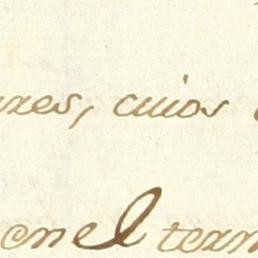 res, cuios
en el term